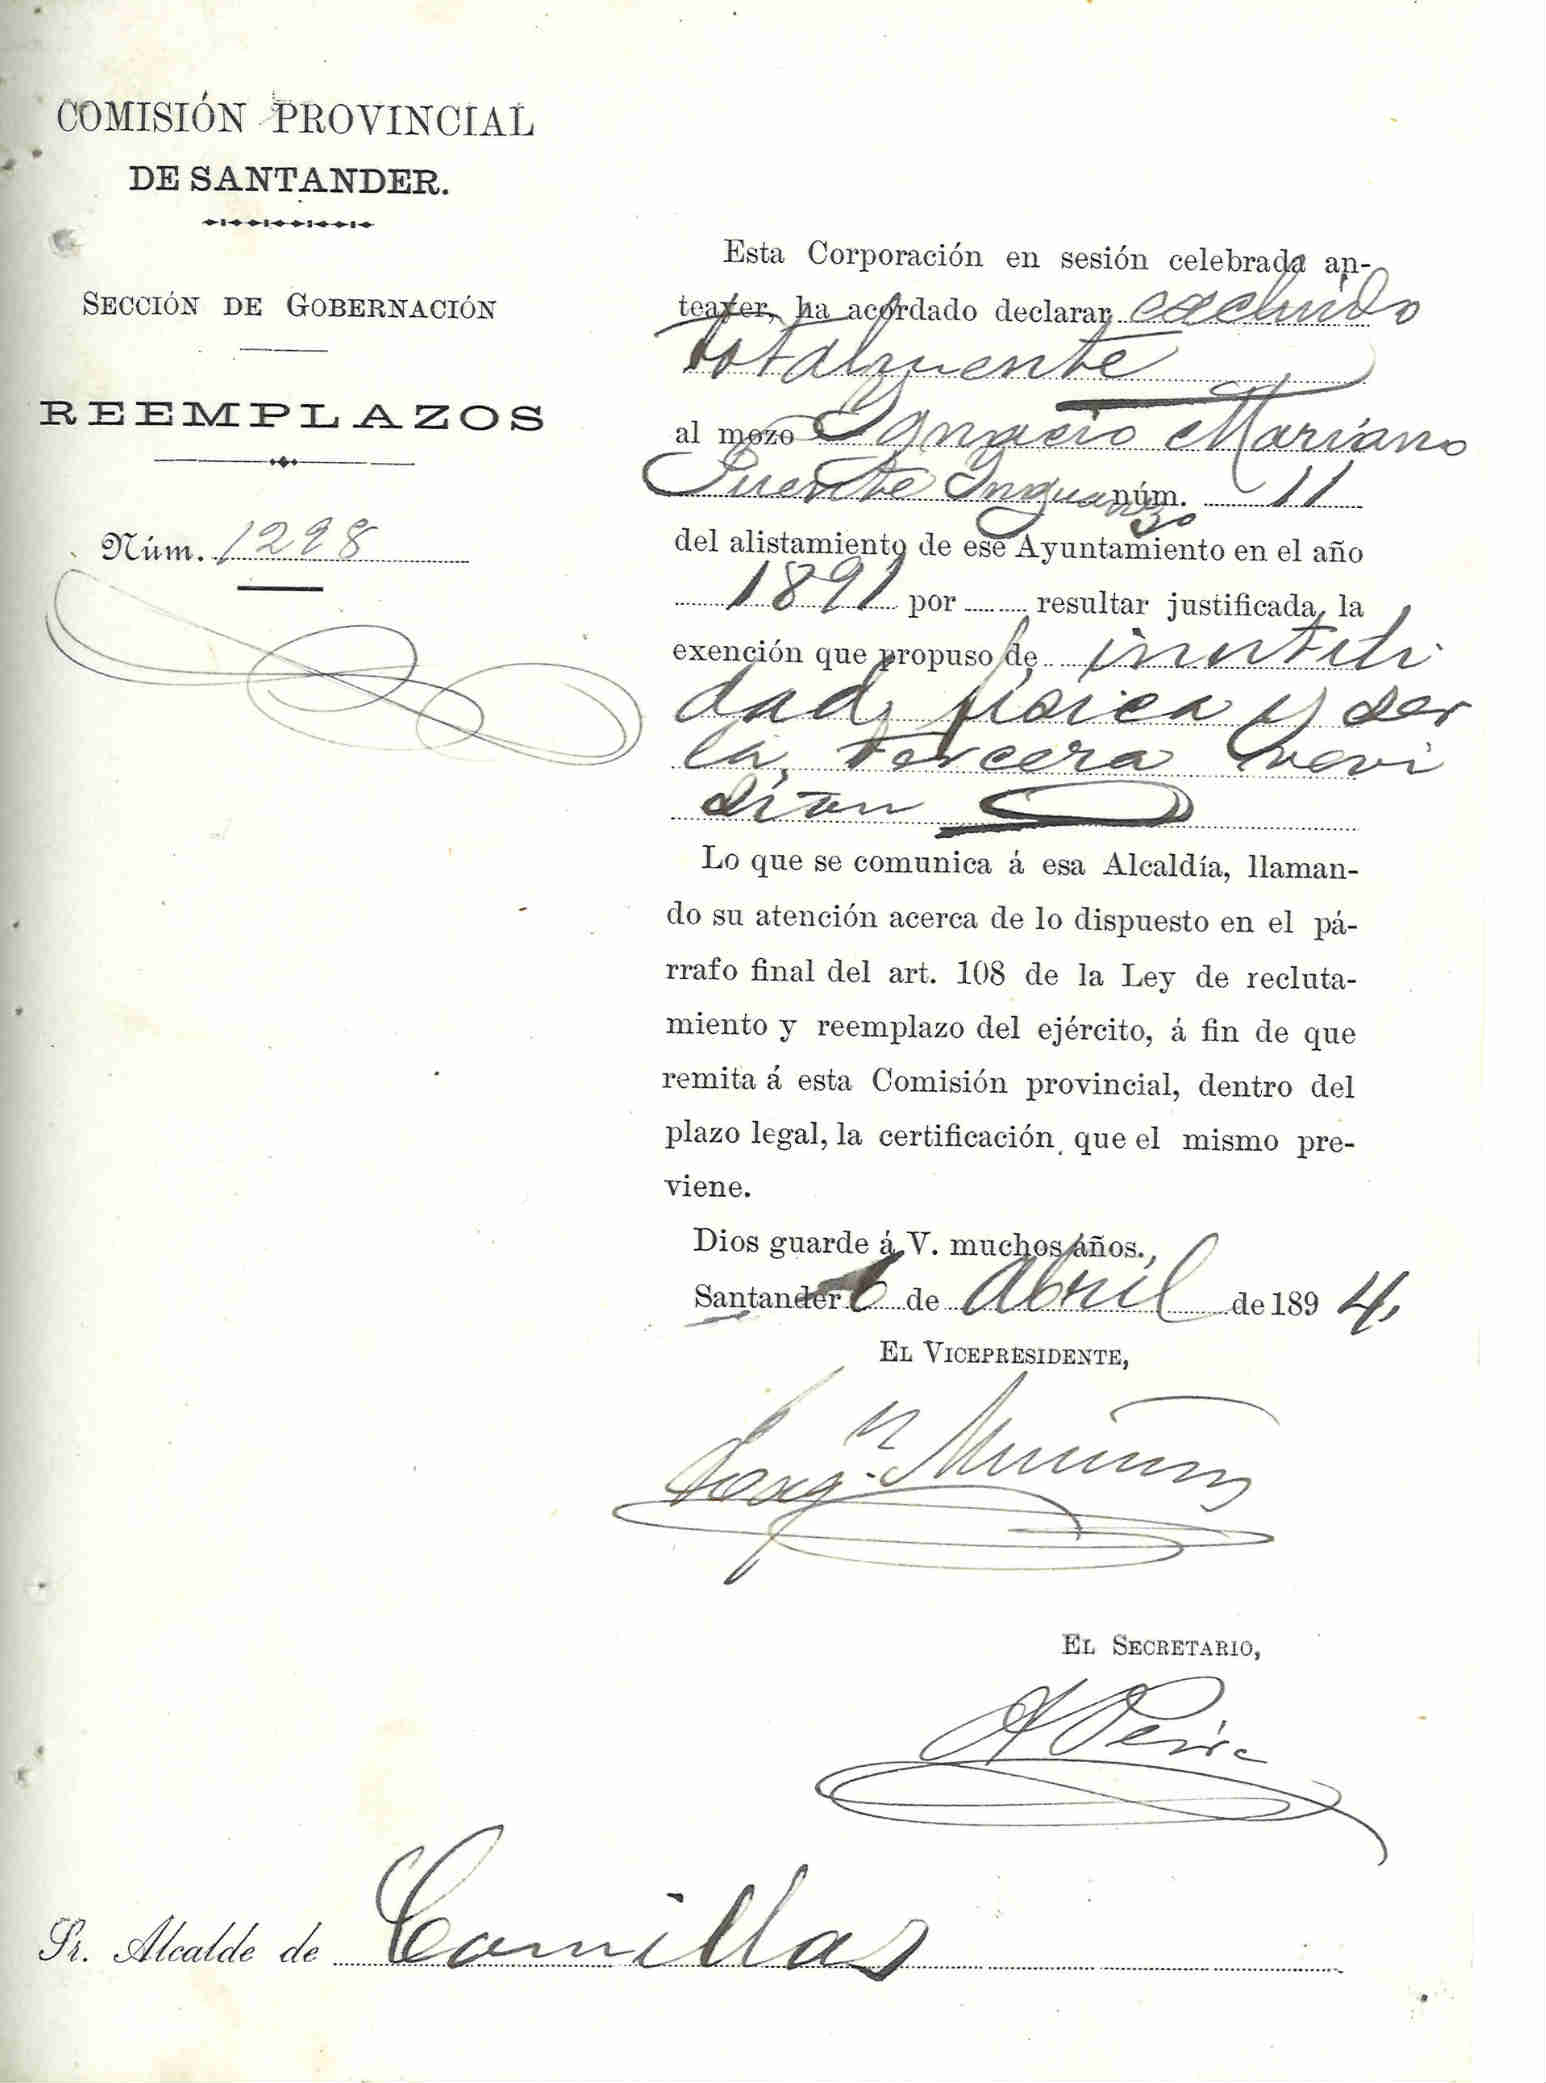 COMISIÓN PROVINCIAL
DE SANTANDER.
SECCIÓN DE GOBERNACIÓN
REEMPLAZOS
Núm. 1298
Esta Corporación en sesión celebrada an-
teayer, ha acordado declarar excluido
totalmente
al mozo Ygnacio Mariano
Puente Inguanzo núm. 11
del alistamiento de ese Ayuntamiento en el año
1891 por resultar justificada la
exención que propuso de inutili
dad física y ser
la tercera revi
sion
Lo que se comunica á esa Alcaldía, llaman-
do su atención acerca de lo dispuesto en el pá-
rrafo final del art. 108 de la Ley de recluta-
miento y reemplazo del ejército, á fin de que
remita á esta Comisión provincial, dentro del
plazo legal, la certificación que el mismo pre-
viene.
Dios guarde á V. muchos años.
Santander 6 de Abril de 1894.
EL VICEPRESIDENTE,
EL SECRETARIO,
Sr. Alcalde de Comillas